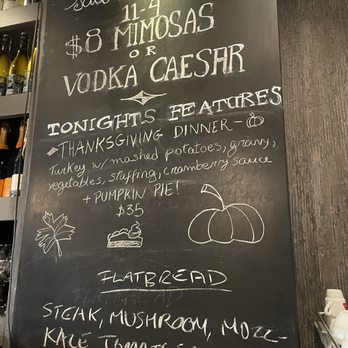 11-4
$8 MIMOSAS
OR
VODKA CAESAR
TONIGHTS FEATURES
THANKSGIVING DINNER-
Turkey w/ mashed potatoes, gravy,
vegetables, stuffing, cranberry sauce
+ PUMPKIN PIE!
$35
FLATBREAD
STEAK, MUSHROOM, MOZZ-
KALE